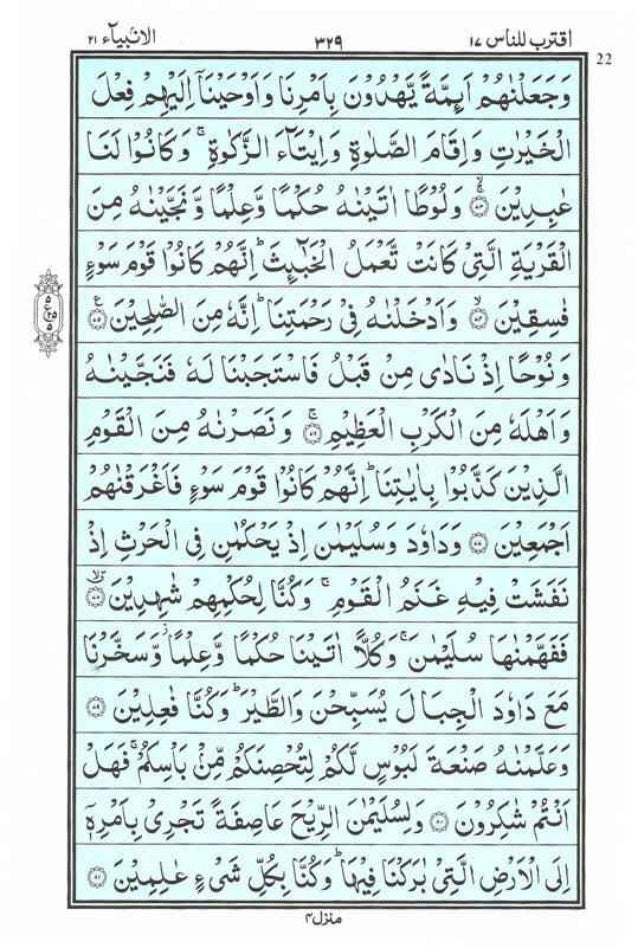 اقترب للناس ١٧ ٣٢٩ الانبیآء ٢١
22
وَجَعَلْنٰهُمْ اَىِٕمَّةً يَّهْدُوْنَ بِاَمْرِنَا وَاَوْحَيْنَاۤ اِلَيْهِمْ فِعْلَ
الْخَيْرٰتِ وَاِقَامَ الصَّلٰوةِ وَاِيْتَآءَ الزَّكٰوةِ ۚ وَكَانُوْا لَنَا
عٰبِدِيْنَ ۙ۝٧٣ وَلُوْطًا اٰتَيْنٰهُ حُكْمًا وَّعِلْمًا وَّنَجَّيْنٰهُ مِنَ
الْقَرْيَةِ الَّتِيْ كَانَتْ تَّعْمَلُ الْخَبٰٓىِٕثَ ؕ اِنَّهُمْ كَانُوْا قَوْمَ سَوْءٍ
فٰسِقِيْنَ ۙ۝٧٤ وَاَدْخَلْنٰهُ فِيْ رَحْمَتِنَا ؕ اِنَّهٗ مِنَ الصّٰلِحِيْنَ ۝٧٥ ع
وَنُوْحًا اِذْ نَادٰى مِنْ قَبْلُ فَاسْتَجَبْنَا لَهٗ فَنَجَّيْنٰهُ
وَاَهْلَهٗ مِنَ الْكَرْبِ الْعَظِيْمِ ۚ۝٧٦ وَنَصَرْنٰهُ مِنَ الْقَوْمِ
الَّذِيْنَ كَذَّبُوْا بِاٰيٰتِنَا ؕ اِنَّهُمْ كَانُوْا قَوْمَ سَوْءٍ فَاَغْرَقْنٰهُمْ
اَجْمَعِيْنَ ۝٧٧ وَدَاوٗدَ وَسُلَيْمٰنَ اِذْ يَحْكُمٰنِ فِي الْحَرْثِ اِذْ
نَفَشَتْ فِيْهِ غَنَمُ الْقَوْمِ ۚ وَكُنَّا لِحُكْمِهِمْ شٰهِدِيْنَ ۝٧٨
فَفَهَّمْنٰهَا سُلَيْمٰنَ ۚ وَكُلًّا اٰتَيْنَا حُكْمًا وَّعِلْمًا ۫ وَّسَخَّرْنَا
مَعَ دَاوٗدَ الْجِبَالَ يُسَبِّحْنَ وَالطَّيْرَ ؕ وَكُنَّا فٰعِلِيْنَ ۝٧٩
وَعَلَّمْنٰهُ صَنْعَةَ لَبُوْسٍ لَّكُمْ لِتُحْصِنَكُمْ مِّنْۢ بَاْسِكُمْ ۚ فَهَلْ
اَنْتُمْ شٰكِرُوْنَ ۝٨٠ وَلِسُلَيْمٰنَ الرِّيْحَ عَاصِفَةً تَجْرِيْ بِاَمْرِهٖۤ
اِلَى الْاَرْضِ الَّتِيْ بٰرَكْنَا فِيْهَا ؕ وَكُنَّا بِكُلِّ شَيْءٍ عٰلِمِيْنَ ۝٨١
منزل ٤